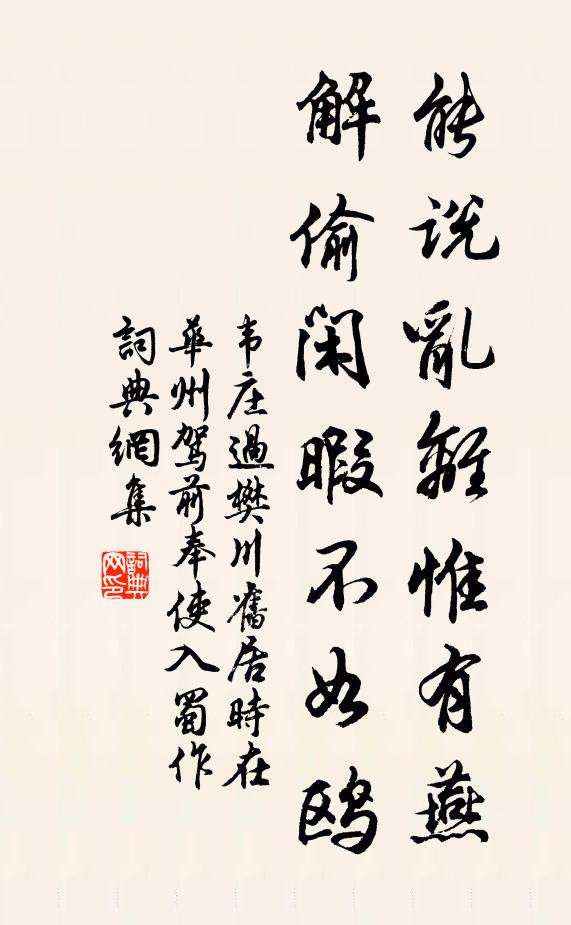 能说亂離惟有燕
解偷閑暇不如鸥
韦庄過樊川舊居時在
華州驾前奉使入蜀作
詞典網集
詞典
网印